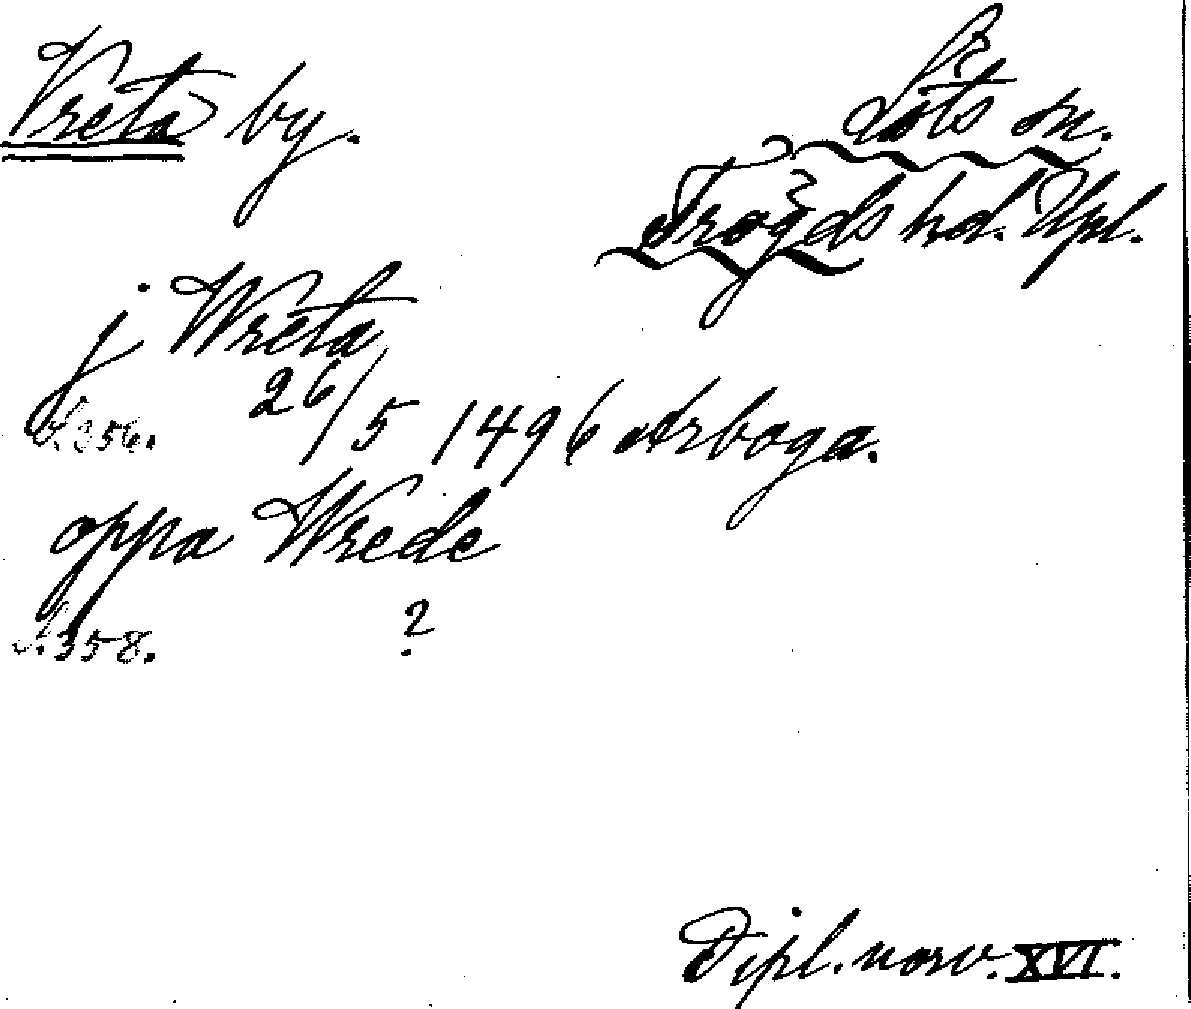 Vreta by.
Löts sn.
Trögds hd. Upl.
j Wreta
s. 356. 26/5 1496 Arboga.
oppa Wrede
s. 358. ?
Dipl. norv. XVI.